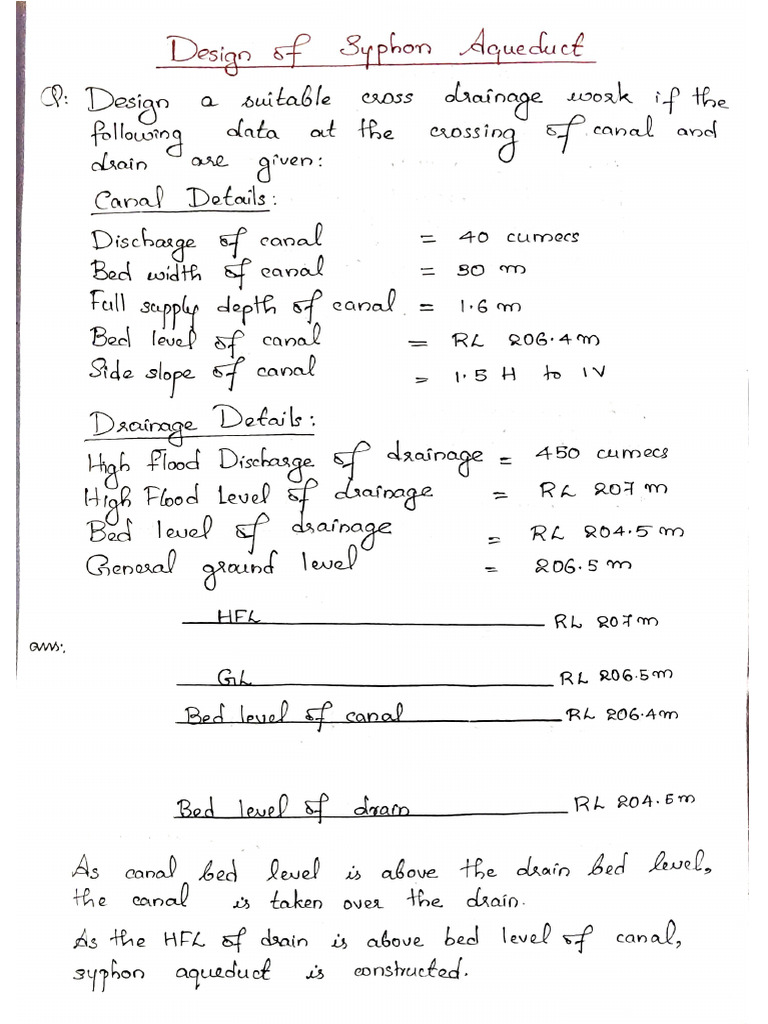 Design of Syphon Aqueduct
Q: Design a suitable cross drainage work if the
following data at the crossing of canal and
drain are given:
Canal Details:
Discharge of canal = 40 cumecs
Bed width of canal = 30 m
Full supply depth of canal = 1.6 m
Bed level of canal = RL 206.4m
Side slope of canal = 1.5 H to 1V
Drainage Details:
High flood Discharge of drainage = 450 cumecs
High Flood Level of drainage = RL 207 m
Bed level of drainage = RL 204.5 m
General ground level = 206.5 m
HFL RL 207m
ans:
GL RL 206.5m
Bed level of canal RL 206.4m
Bed level of drain RL 204.5m
As canal bed level is above the drain bed level,
the canal is taken over the drain.
As the HFL of drain is above bed level of canal,
syphon aqueduct is constructed.